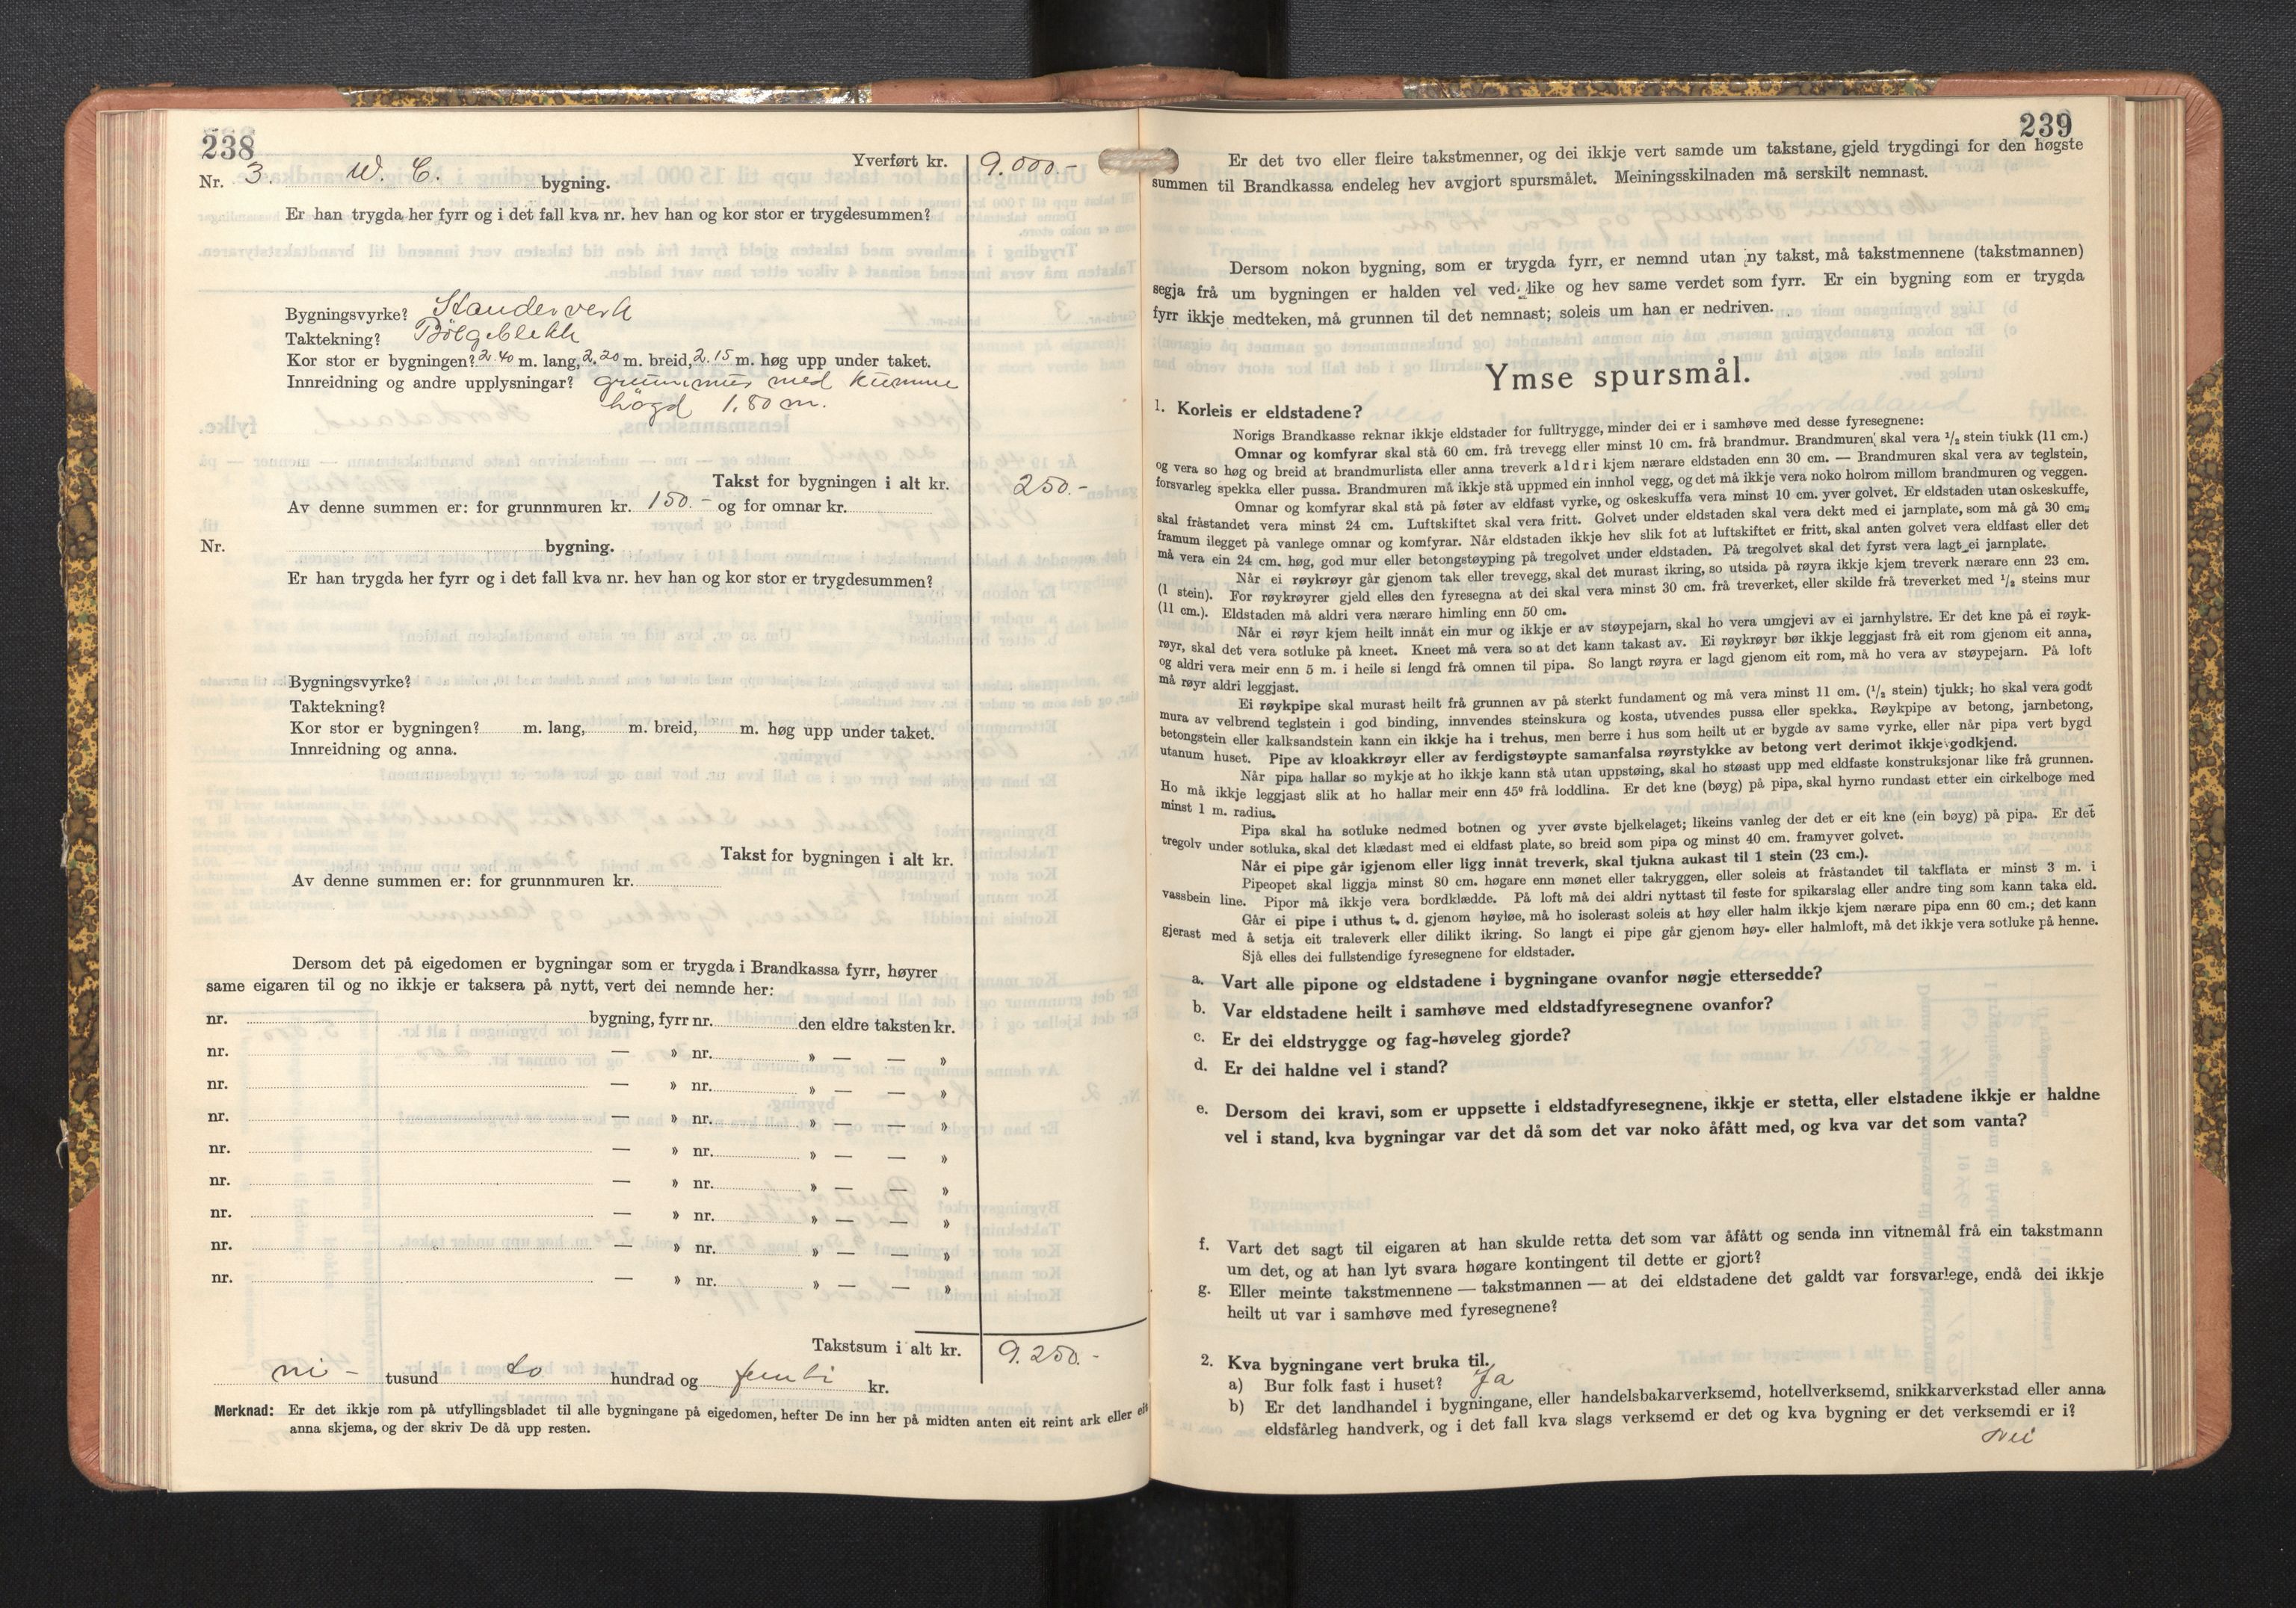 238
Yverført kr. 9.000.-
Nr. 3. W. C. bygning.
Er han trygda her fyrr og i det fall kva nr. hev han og kor stor er trygdesummen?
Bygningsvyrke? Standerverk
Taktekning? Bölgeblekk
Kor stor er bygningen? 2.40 m. lang, 2.20 m. breid, 2.15 m. høg upp under taket.
Innreidning og andre upplysningar? grunnmur med kumme
högd 1.80 m.
Takst for bygningen i alt kr. 250.-
Av denne summen er: for grunnmuren kr. 150.- og for omnar kr.
Nr. bygning.
Er han trygda her fyrr og i det fall kva nr. hev han og kor stor er trygdesummen?
Bygningsvyrke?
Taktekning?
Kor stor er bygningen? m. lang, m. breid, m. høg upp under taket.
Innreidning og anna.
Takst for bygningen i alt kr.
Av denne summen er: for grunnmuren kr.
Dersom det på eigedomen er bygningar som er trygda i Brandkassa fyrr, høyrer
same eigaren til og no ikkje er taksera på nytt, vert dei nemnde her:
nr. bygning, fyrr nr. den eldre taksten kr.
nr. — » nr. » — — »
nr. — » nr. » — — »
nr. — » nr. » — — »
nr. — » nr. » — — »
nr. — » nr. » — — »
nr. — » nr. » — — »
nr. — » nr. » — — »
nr. — » nr. » — — »
Takstsum i alt kr. 9.250.-
ni - tusund to hundrad og femti kr.
Merknad: Er det ikkje rom på utfyllingsbladet til alle bygningane på eigedomen, hefter De inn her på midten anten eit reint ark eller eit
anna skjema, og der skriv De då upp resten.
239
Er det tvo eller fleire takstmenner, og dei ikkje vert samde um takstane, gjeld trygdingi for den høgste
summen til Brandkassa endeleg hev avgjort spursmålet. Meiningsskilnaden må serskilt nemnast.
Dersom nokon bygning, som er trygda fyrr, er nemnd utan ny takst, må takstmennene (takstmannen)
segja frå um bygningen er halden vel ved like og hev same verdet som fyrr. Er ein bygning som er trygda
fyrr ikkje medteken, må grunnen til det nemnast; soleis um han er nedriven.
Ymse spursmål.
1. Korleis er eldstadene?
Norigs Brandkasse reknar ikkje eldstader for fulltrygge, minder dei er i samhøve med desse fyresegnene:
Omnar og komfyrar skal stå 60 cm. frå trevegg eller minst 10 cm. frå brandmur. Brandmuren skal vera 1/2 stein tjukk (11 cm.)
og vera so høg og breid at brandmurlista eller anna treverk aldri kjem nærare eldstaden enn 30 cm. — Brandmuren skal vera av teglstein,
forsvarleg spekka eller pussa. Brandmuren må ikkje stå uppmed ein innhol vegg, og det må ikkje vera noko holrom millom brandmuren og veggen.
Omnar og komfyrar skal stå på føter av eldfast vyrke, og oskeskuffa vera minst 10 cm. yver golvet. Er eldstaden utan oskeskuffe,
skal fråstandet vera minst 24 cm. Luftskiftet skal vera fritt. Golvet under eldstaden skal vera dekt med ei jarnplate, som må gå 30 cm.
framum ilegget på vanlege omnar og komfyrar. Når eldstaden ikkje hev slik fot at luftskiftet er fritt, skal anten golvet vera eldfast eller det
må vera ein 24 cm. høg, god mur eller betongstøyping på tregolvet under eldstaden. På tregolvet skal det fyrst vera lagt ei jarnplate.
Når ei røykrøyr går gjenom tak eller trevegg, skal det murast ikring, so utsida på røyra ikkje kjem treverk nærare enn 23 cm.
(1 stein). For røykrøyrer gjeld elles den fyresegna at dei skal vera minst 30 cm. frå treverket, eller skilde frå treverket med 1/2 steins mur
(11 cm.). Eldstaden må aldri vera nærare himling enn 50 cm.
Når ei røyr kjem heilt innåt ein mur og ikkje er av støypejarn, skal ho vera umgjevi av ei jarnhylstre. Er det kne på ei røyk-
røyr, skal det vera sotluke på kneet. Kneet må vera so at det kann takast av. Ei røykrøyr bør ikkje leggjast frå eit rom gjenom eit anna,
og aldri vera meir enn 5 m. i heile si lengd frå omnen til pipa. So langt røyra er lagd gjenom eit rom, må ho vera av støypejarn. På loft
må røyr aldri leggjast.
Ei røykpipe skal murast heilt frå grunnen av på sterkt fundament og må vera minst 11 cm. (1/2 stein) tjukk; ho skal vera godt
mura av velbrend teglstein i god binding, innvendes steinskura og kosta, utvendes pussa eller spekka. Røykpipe av betong, jarnbetong,
betongstein eller kalksandstein kann ein ikkje ha i trehus, men berre i hus som heilt ut er bygde av same vyrke, eller når pipa vert bygd
utanum huset. Pipe av kloakkrøyr eller av ferdigstøypte samanfalsa røyrstykke av betong vert derimot ikkje godkjend.
Når pipa hallar so mykje at ho ikkje kann stå utan uppstøing, skal ho støast upp med eldfaste konstruksjonar like frå grunnen.
Ho må ikkje leggjast slik at ho hallar meir enn 45° frå loddlina. Er det kne (bøyg) på pipa, skal hyrno rundast etter ein cirkelboge med
minst 1 m. radius.
Pipa skal ha sotluke nedmed botnen og yver øvste bjelkelaget; likeins vanleg der det er eit kne (ein bøyg) på pipa. Er det
tregolv under sotluka, skal det klædast med ei eldfast plate, so breid som pipa og minst 40 cm. framyver golvet.
Når ei pipe går igjenom eller ligg innåt treverk, skal tjukna aukast til 1 stein (23 cm.).
Pipeopet skal liggja minst 80 cm. høgare enn mønet eller takryggen, eller soleis at fråstandet til takflata er minst 3 m. i
vassbein line. Pipor må ikkje vera bordklædde. På loft må dei aldri nyttast til feste for spikarslag eller andre ting som kann taka eld.
Går ei pipe i uthus t. d. gjenom høyløe, må ho isolerast soleis at høy eller halm ikkje kjem nærare pipa enn 60 cm.; det kann
gjerast med å setja eit traleverk eller dilikt ikring. So langt ei pipe går gjenom høy- eller halmloft, må det ikkje vera sotluke på henne.
Sjå elles dei fullstendige fyresegnene for eldstader.
a. Vart alle pipone og eldstadene i bygningane ovanfor nøgje ettersedde?
b. Var eldstadene heilt i samhøve med eldstadfyresegnene ovanfor?
c. Er dei eldstrygge og fag-høveleg gjorde?
d. Er dei haldne vel i stand?
e. Dersom dei kravi, som er uppsette i eldstadfyresegnene, ikkje er stetta, eller elstadene ikkje er haldne
vel i stand, kva bygningar var det då som det var noko åfått med, og kva var det som vanta?
f. Vart det sagt til eigaren at han skulde retta det som var åfått og senda inn vitnemål frå ein takstmann
um det, og at han lyt svara høgare kontingent til dette er gjort?
g. Eller meinte takstmennene — takstmannen — at dei eldstadene det galdt var forsvarlege, endå dei ikkje
heilt ut var i samhøve med fyresegnene?
2. Kva bygningane vert bruka til.
a) Bur folk fast i huset? Ja
b) Er det landhandel i bygningane, eller handelsbakarverksemd, hotellverksemd, snikkarverkstad eller anna
eldsfårleg handverk, og i det fall kva slags verksemd er det og kva bygning er det verksemdi er i?
Nei